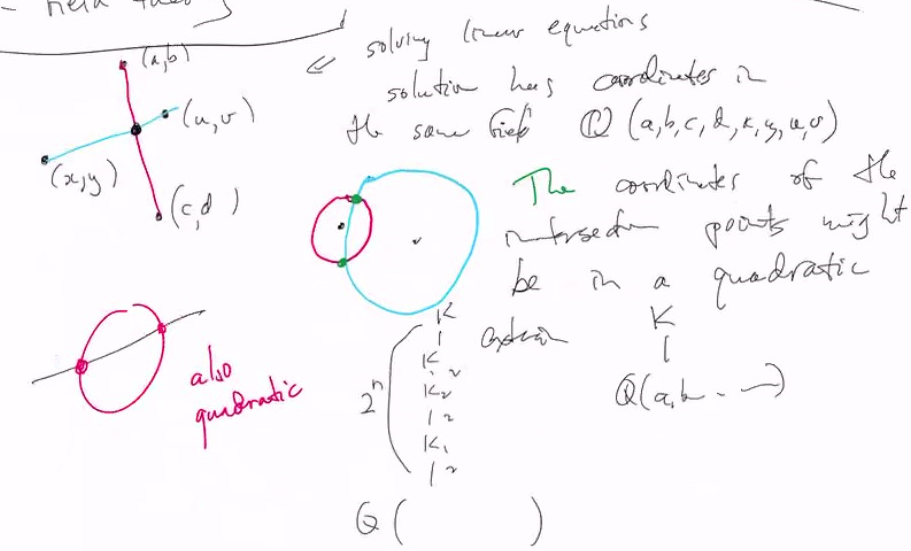 (a,b)
(u,v)
(x,y)
(c,d)
⇐ solving linear equations
solution has coordinates in
the same field Q(a,b,c,d,x,y,u,v)
The coordinates of the
intersection points might
be in a quadratic
K
|
Q(a,b...)
also
quadratic
2^n
K
|
K
2
K₂
| 2
K₁
| 2
Q( )